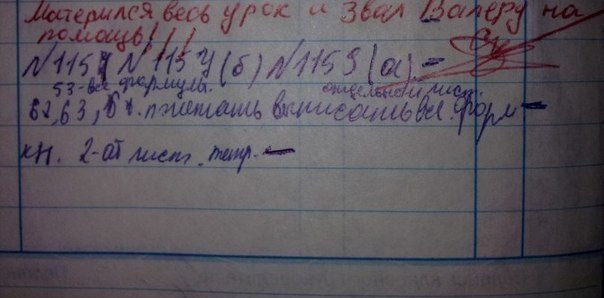 Матерился весь урок и звал Валеру на
помощь!!!
№1157 №1154(б) №1159(а)
53-все формулы. отдельной лист.
62,63, 61. прочитать выписать все форм
кн. 2-ой лист. тетр.